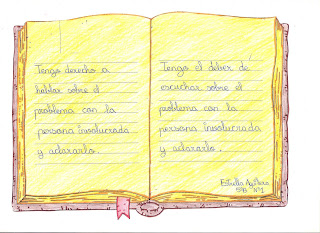 Tengo derecho a
hablar sobre el
problema con la
persona involucrada
y aclararlo.
Tengo el deber de
escuchar sobre el
problema con la
persona involucrada
y aclararlo.
Estrella Aguilera
5ºB Nº1